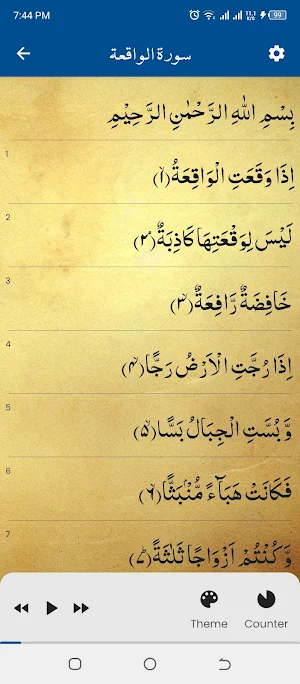 7:44 PM 11.1 K/s 99
سورة الواقعة
بِسْمِ اللّٰهِ الرَّحْمٰنِ الرَّحِيْمِ
1
اِذَا وَقَعَتِ الْوَاقِعَةُ ۙ﴿۱﴾
2
لَيْسَ لِوَقْعَتِهَا كَاذِبَةٌ ۘ﴿۲﴾
3
خَافِضَةٌ رَّافِعَةٌ ۙ﴿۳﴾
4
اِذَا رُجَّتِ الْاَرْضُ رَجًّا ۙ﴿۴﴾
5
وَّ بُسَّتِ الْجِبَالُ بَسًّا ۙ﴿۵﴾
6
فَكَانَتْ هَبَآءً مُّنْۢبَثًّا ۙ﴿۶﴾
7
وَّ كُنْتُمْ اَزْوَاجًا ثَلٰثَةً ؕ﴿۷﴾
Theme Counter